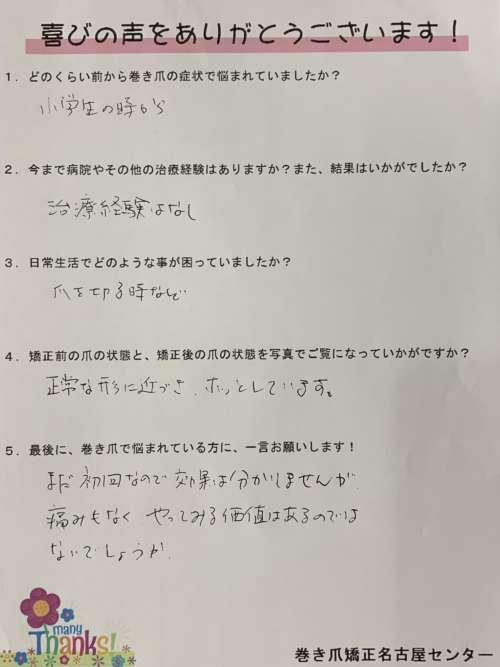 喜びの声をありがとうございます！
1．どのくらい前から巻き爪の症状で悩まれていましたか？
小学生の時から
2．今まで病院やその他の治療経験はありますか？また、結果はいかがでしたか？
治療経験はなし
3．日常生活でどのような事が困っていましたか？
爪を切る時など
4．矯正前の爪の状態と、矯正後の爪の状態を写真でご覧になっていかがですか？
正常な形に近づき、ホッとしています。
5．最後に、巻き爪で悩まれている方に、一言お願いします！
まだ初回なので効果は分かりませんが、
痛みもなく、やってみる価値はあるのでは
ないでしょうか。
many
Thanks!
巻き爪矯正名古屋センター